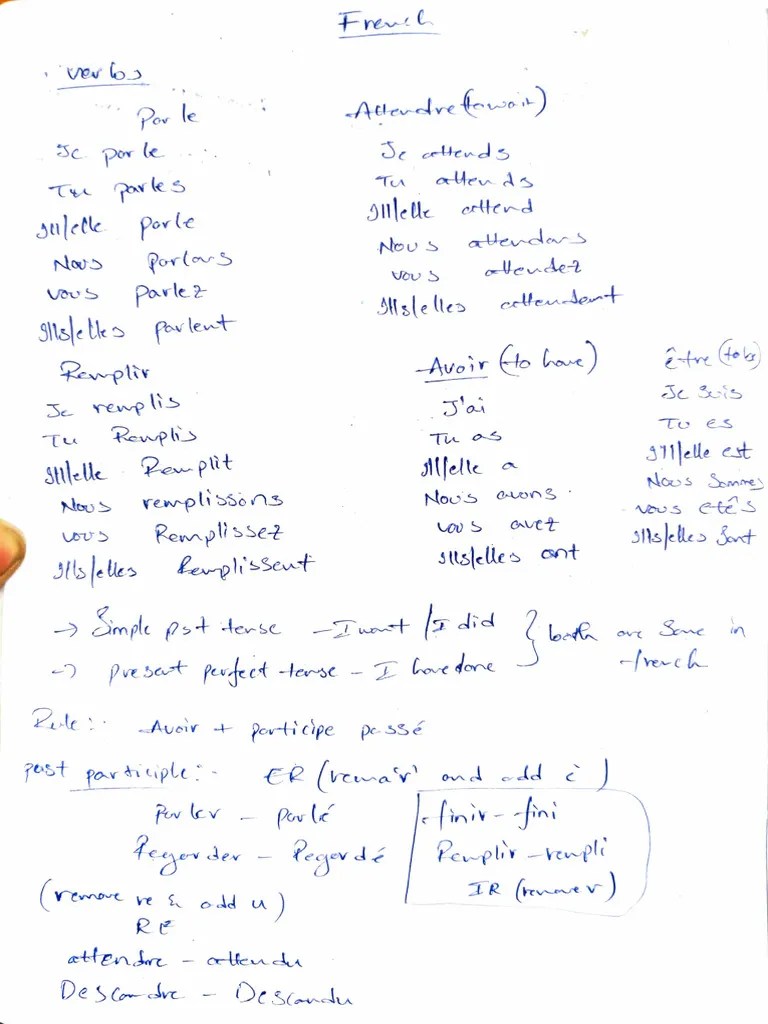 French
verbs
Parle
Je parle
Tu parles
Il/elle parle
Nous parlons
vous parlez
Ils/elles parlent
Attendre (to wait)
Je attends
Tu attends
Il/elle attend
Nous attendons
vous attendez
Ils/elles attendent
Remplir
Je remplis
Tu Remplis
Il/elle Remplit
Nous remplissons
vous Remplissez
Ils/elles Remplissent
Avoir (to have)
J'ai
Tu as
Il/elle a
Nous avons
vous avez
Ils/elles ont
être (to be)
Je suis
Tu es
Il/elle est
Nous Sommes
vous etês
Ils/elles Sont
→ Simple pst tense - I want / I did } both are Same in
→ present perfect tense - I have done french
Rule:- Avoir + participe passé
past participle:- ER (remove 'r' and add é)
Parler - parlé
Regarder - Regardé
finir - fini
Remplir - rempli
IR (remove r)
(remove re & add u)
RE
attendre - attendu
Descandre - Descandu